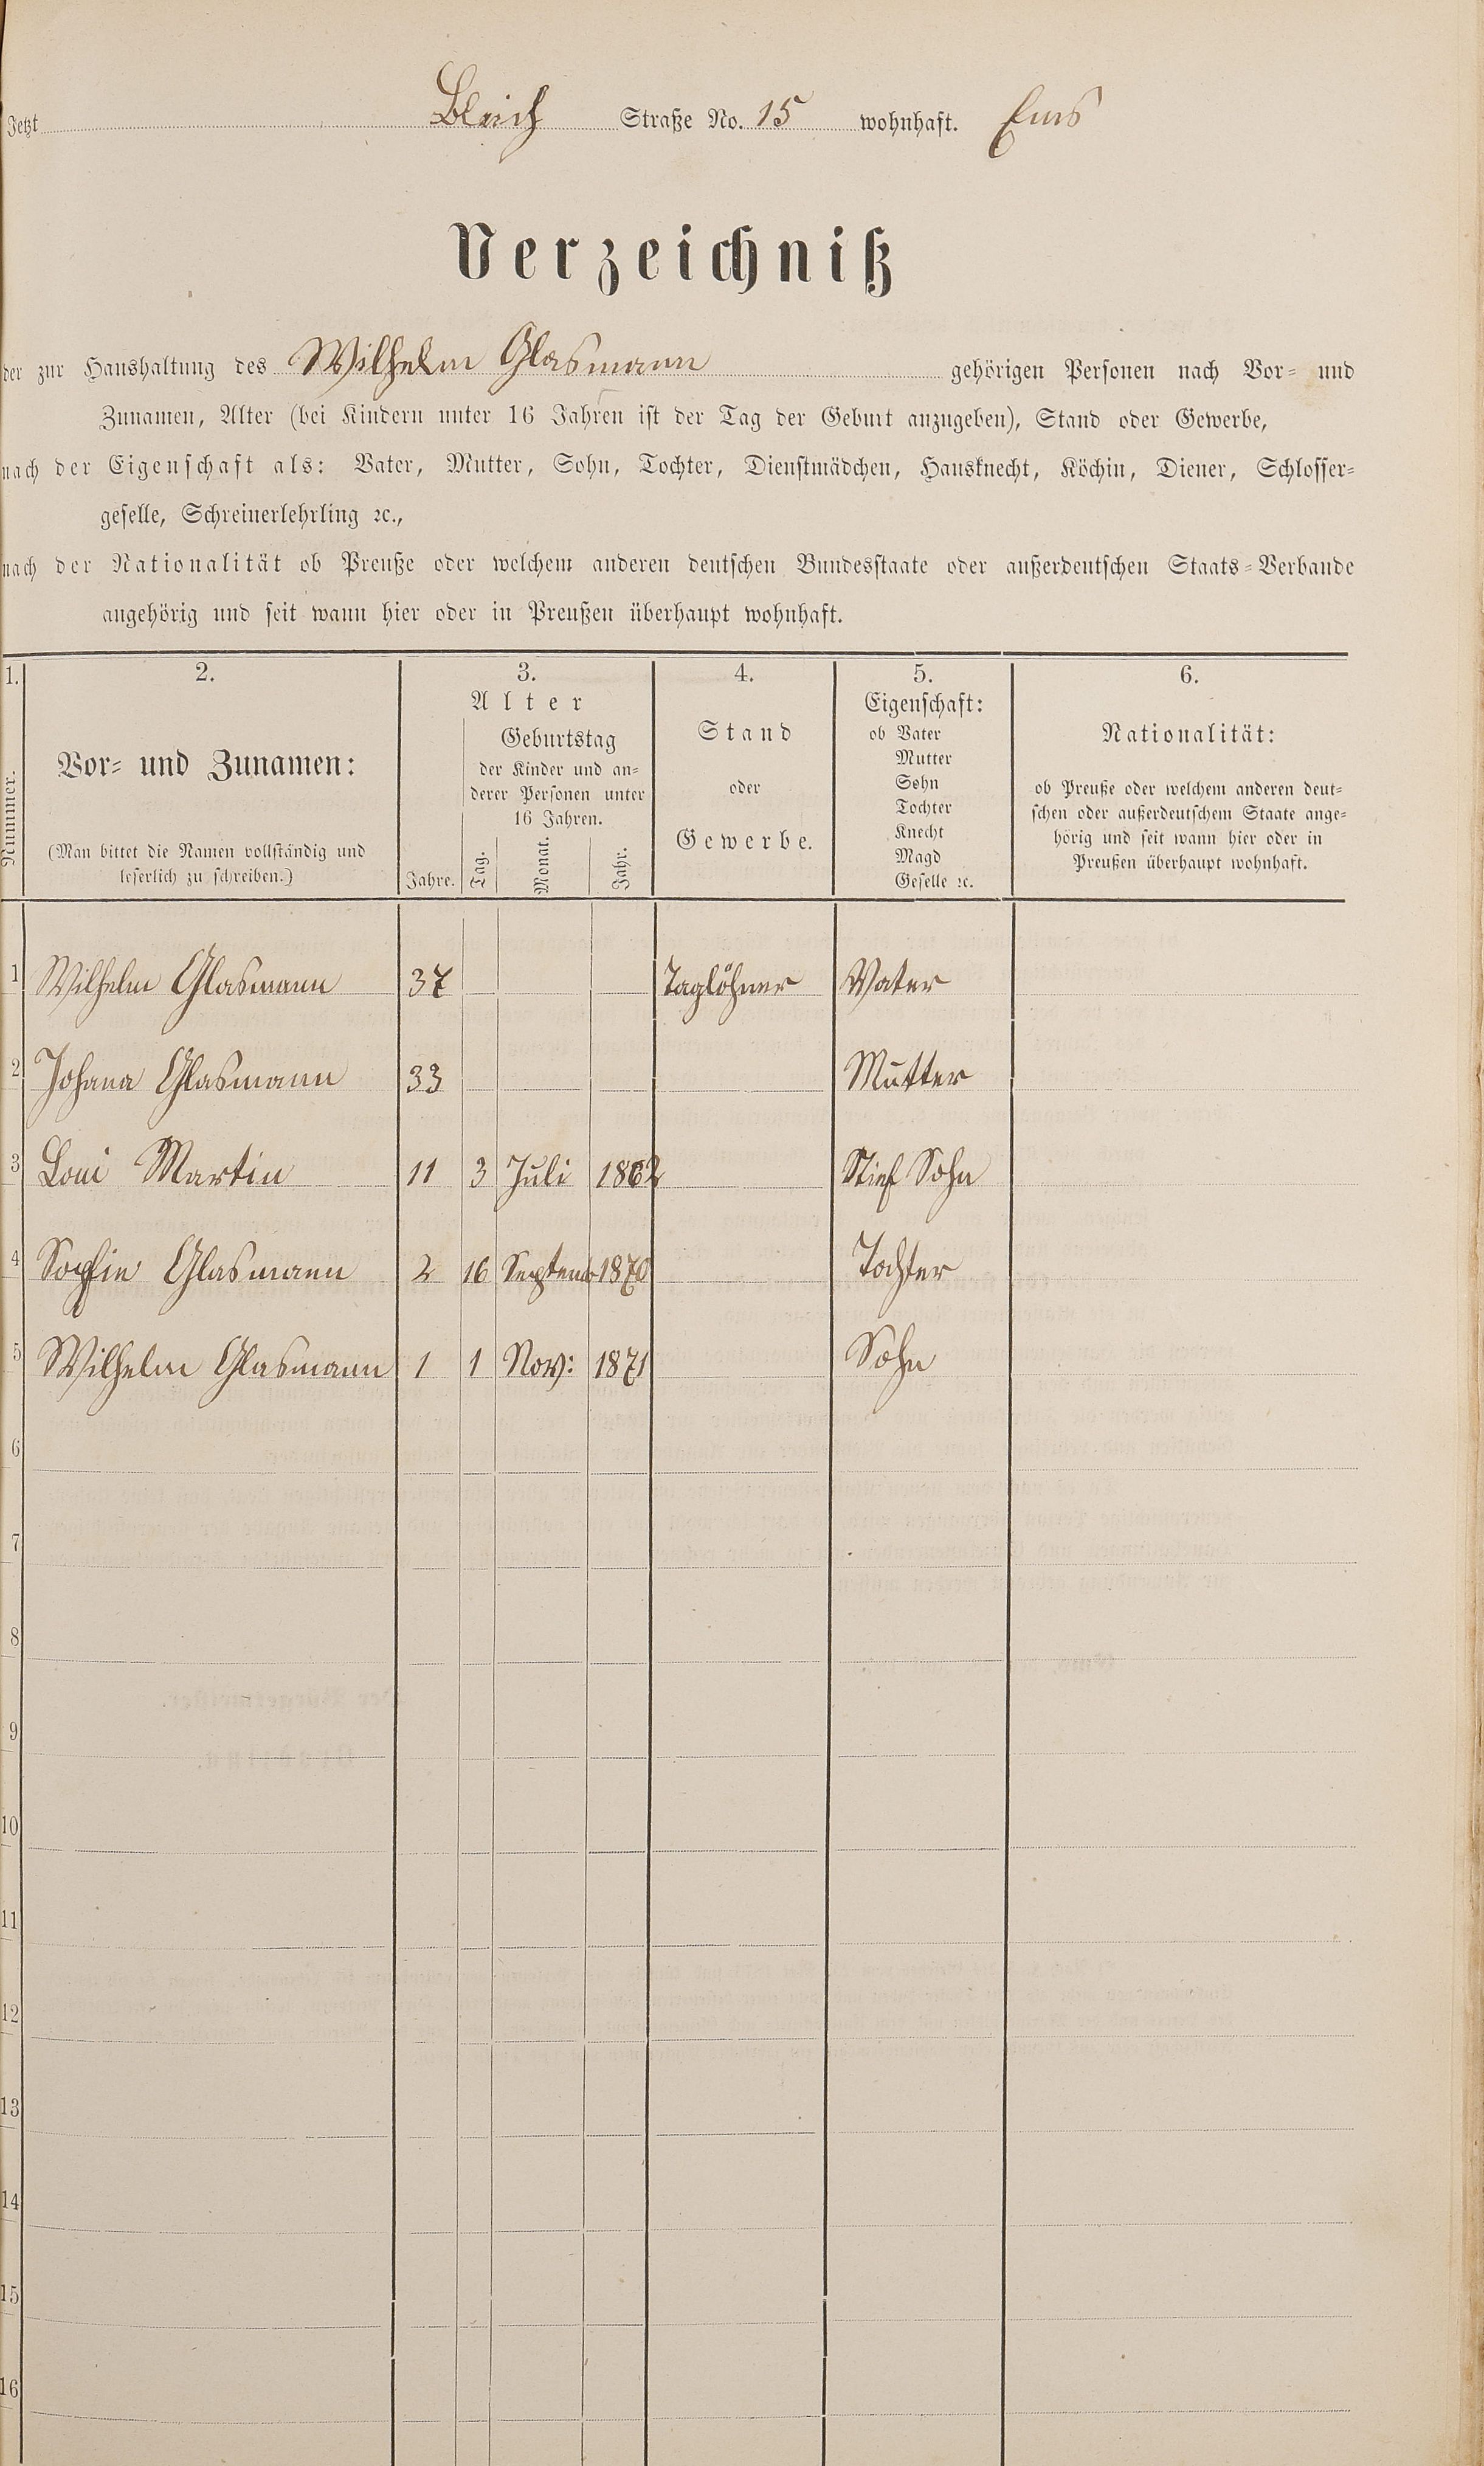 Jetzt Bleich Straße No. 15 wohnhaft. Ems
Verzeichniß
der zur Haushaltung des Wilhelm Glasmann gehörigen Personen nach Vor- und
Zunamen, Alter (bei Kindern unter 16 Jahren ist der Tag der Geburt anzugeben), Stand oder Gewerbe,
nach der Eigenschaft als: Vater, Mutter, Sohn, Tochter, Dienstmädchen, Hausknecht, Köchin, Diener, Schlosser-
geselle, Schreinerlehrling ꝛc.,
nach der Nationalität ob Preuße oder welchem anderen deutschen Bundesstaate oder außerdeutschen Staats-Verbande
angehörig und seit wann hier oder in Preußen überhaupt wohnhaft.
1.
Nummer.
2.
Vor- und Zunamen:
(Man bittet die Namen vollständig und
leserlich zu schreiben.)
3.
Alter
Jahre.
Geburtstag
der Kinder und an-
derer Personen unter
16 Jahren.
Tag.
Monat.
Jahr.
4.
Stand
oder
Gewerbe.
5.
Eigenschaft:
ob Vater
Mutter
Sohn
Tochter
Knecht
Magd
Geselle ꝛc.
6.
Nationalität:
ob Preuße oder welchem anderen deut-
schen oder außerdeutschem Staate ange-
hörig und seit wann hier oder in
Preußen überhaupt wohnhaft.
1 Wilhelm Glasmann 37 Taglöhner Vater
2 Johana Glasmann 33 Mutter
3 Loui Martin 11 3 Juli 1862 Stief Sohn
4 Sophie Glasmann 2 16 Septemb 1870 Tochter
5 Wilhelm Glasmann 1 1 Nov: 1871 Sohn
6
7
8
9
10
11
12
13
14
15
16